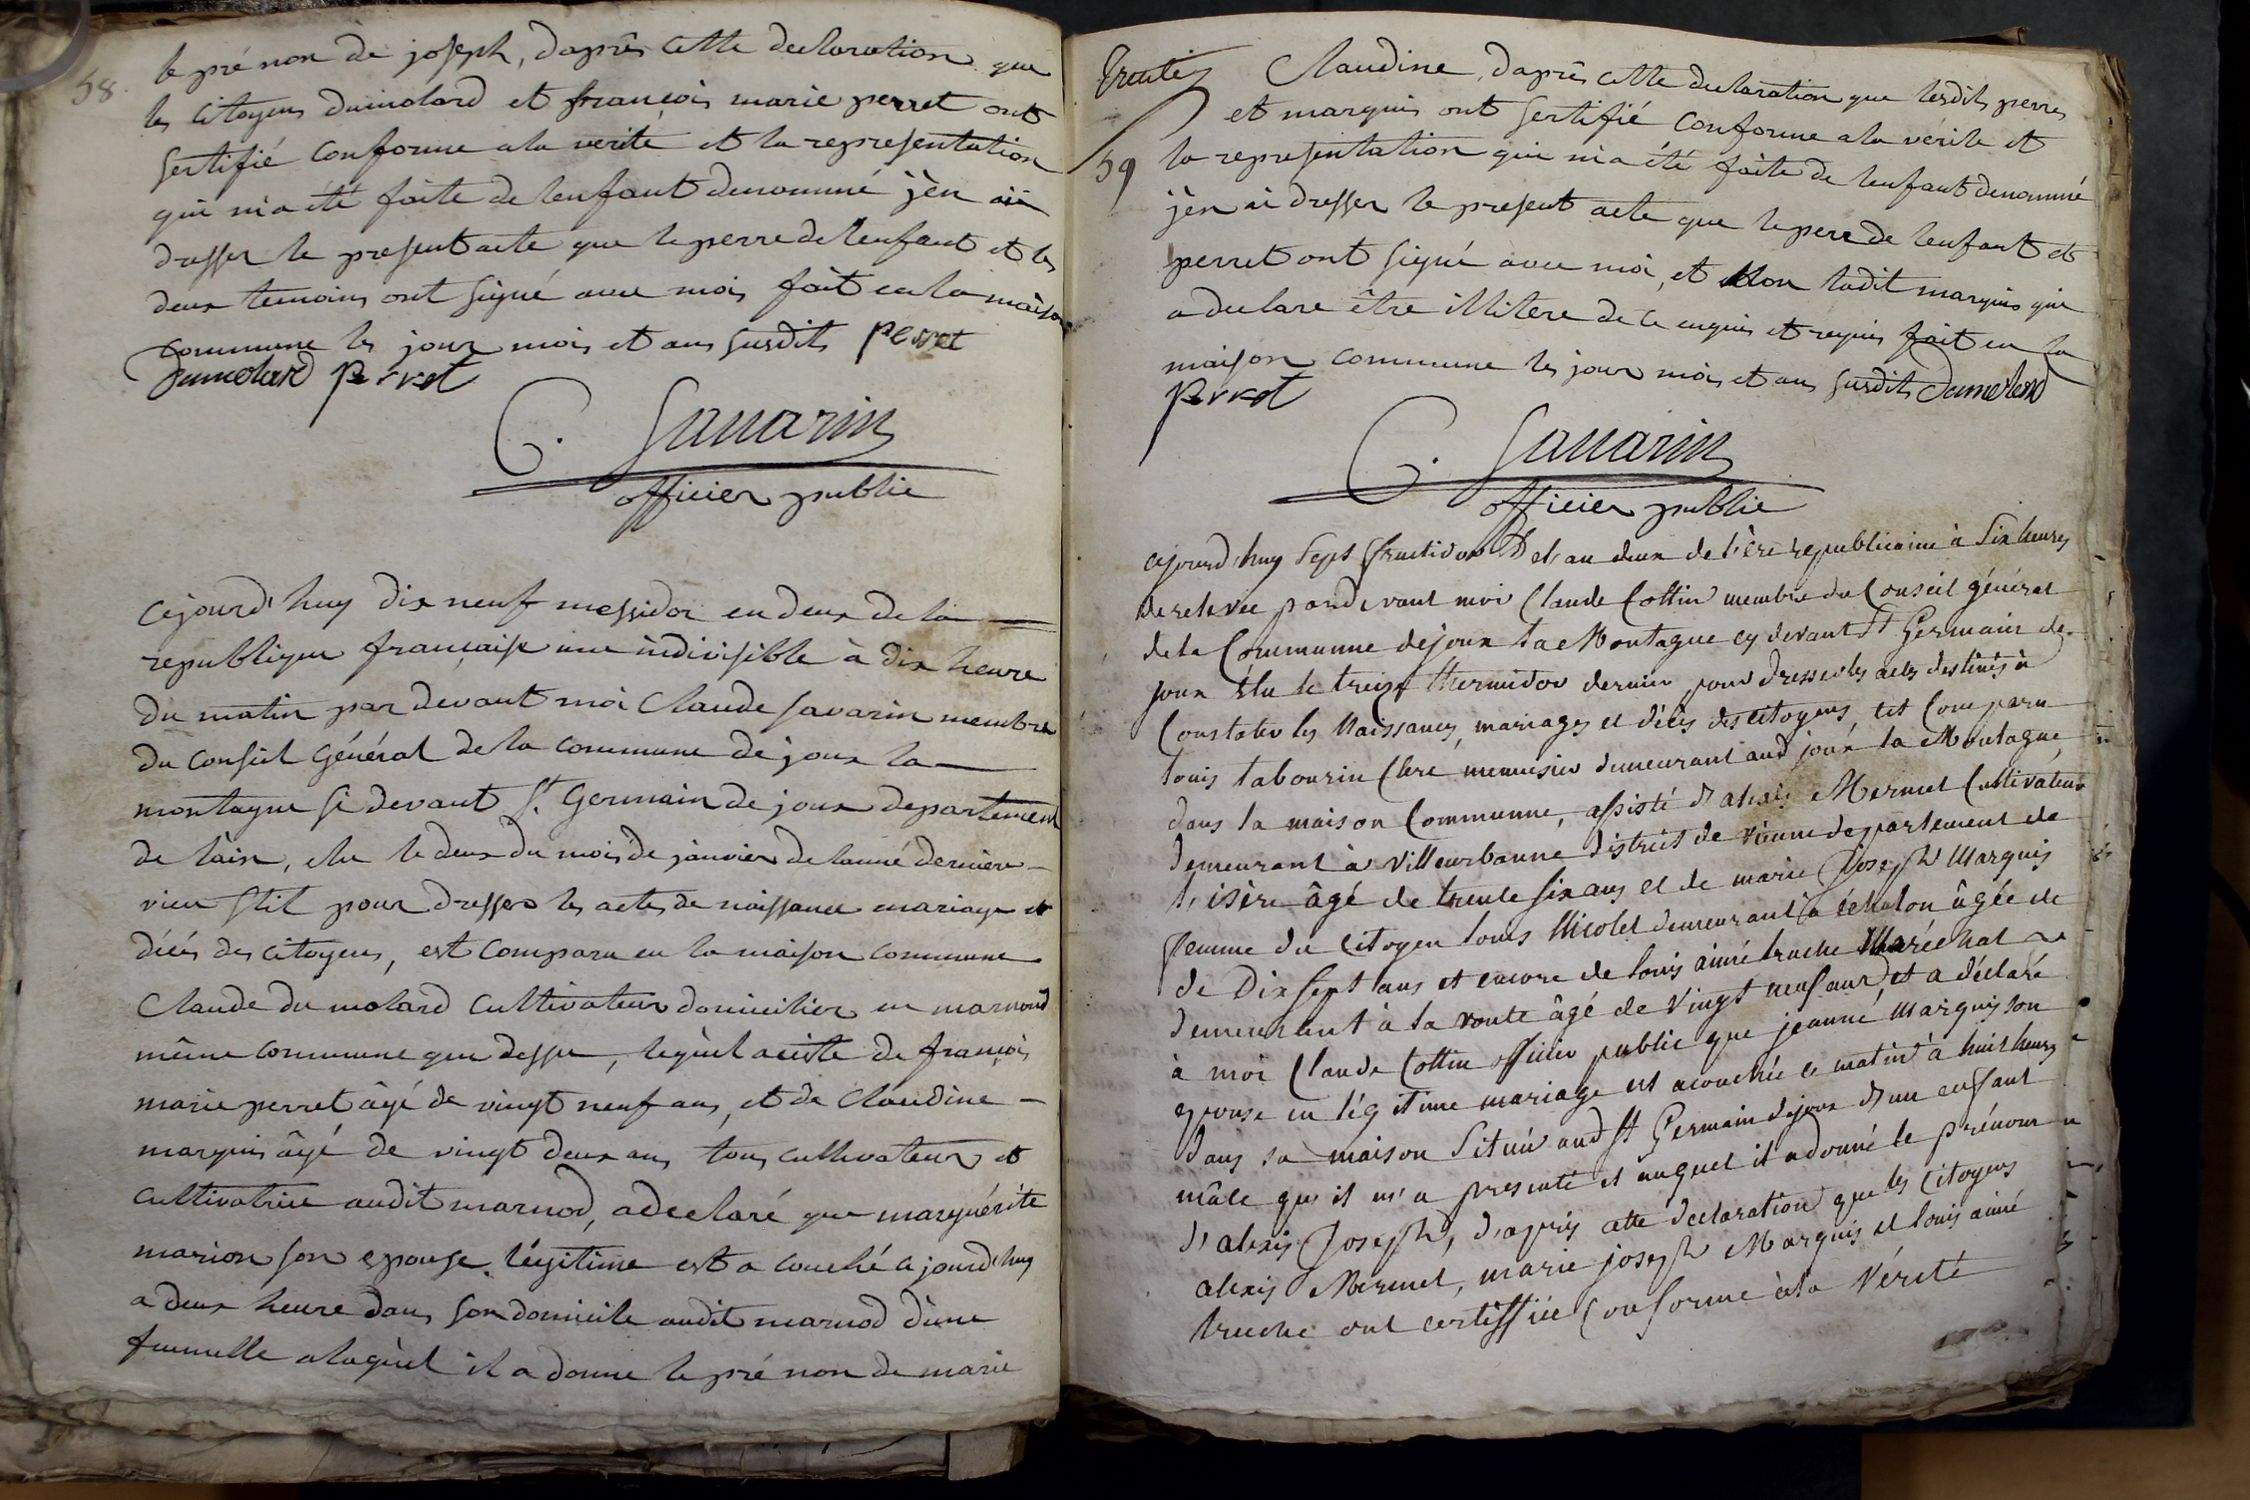 58.
le pré non de joseph, daprès cette declaration que
les citoyens dumolard et françois marie perret ont
sertifié conforme a la verité et la representation
qui m'a été faite de lenfant denommé j'en ai
dresser le present acte que le perre de lenfant et les
deux temoins ont signé avec moi, fait en la maison
commune les jour mois et ans susdits perret
Dumolard perret
C. Savarin
officier public
cejourd'huy dix neuf messidor en deux de la
republique française une indivisible à dix heure
du matin par devant moi Claude savarin membre
du conseil général de la commune de joux la
montagne si devant St. Germain de joux departement
de lain, elu le deux du mois de janvier de lanné derniere
vieu stil pour dresser les actes de naissance mariage et
décés des citoyens, est comparu en la maison commune
Claude du molard cultivateur domicilier en marnod
même commune que dessu, lequel aciste de françois
marie perret âgé de vingt neuf ans, et de Claudine
marquis âgé de vingt deux ans tous cultivateur et
cultivatrice audit marnod, a declaré que marguérite
marion son epouse légitime est a couché ajourd'huy
a deux heure dans son domicile audit marnod d'une
fummelle a laquel il a donne le pré non de marie
Trente
59
Claudine, daprès cette declaration que lesdits perret
et marquis ont sertifié conforme a la vérité et
la representation qui m'a été faite de lenfant denommé
j'en ai dresser le present acte que le pere de lenfant et
perret ont signé avec moi, et non ladit marquis qui
a declare être illitere de ce enquis et requis fait en la
maison commune les jour mois et ans susdits Dumolard
perret
C. Savarin
officier public
cejourd'huy sept fructidor de l'an deux de l'ère republicaine à six heures
de relevée pardevant moi Claude Cottin membre du Conseil général
de la Commune de joux la Montagne cy devant St Germain de
joux élu le treize thermidor dernier pour dresser les actes destinés à
Constater les Naissances, mariages et décès des citoyens, est Comparu
louis tabourin menuisier demeurant aud joux la Montagne
dans la maison Commune, assisté d'alexis Mermet Cultivateur
demeurant à Villeurbanne district de vienne departement de
l'isère âgé de trente six ans et de marie joseph Marquis
femme du Citoyen louis Nicolet demeurant à échalon âgée de
de Dix sept ans et encore de louis aimé truche Maréchal
demeurant à la voute âgé de Vingt neuf ans, et a déclaré
à moi Claude Cottin officier public que jeanne Marquis son
epouse en légitime mariage est acouchée ce matin à huit heures
dans sa maison Située aud St Germain dejoux d'un enfant
mâle qu'il m'a presenté et auquel il a donné le prénom
d'alexis joseph, d'après cette declaration que les Citoyens
alexis Mermet, marie joseph Marquis et louis aimé
truche ont certiffiée Conforme à la Vérité